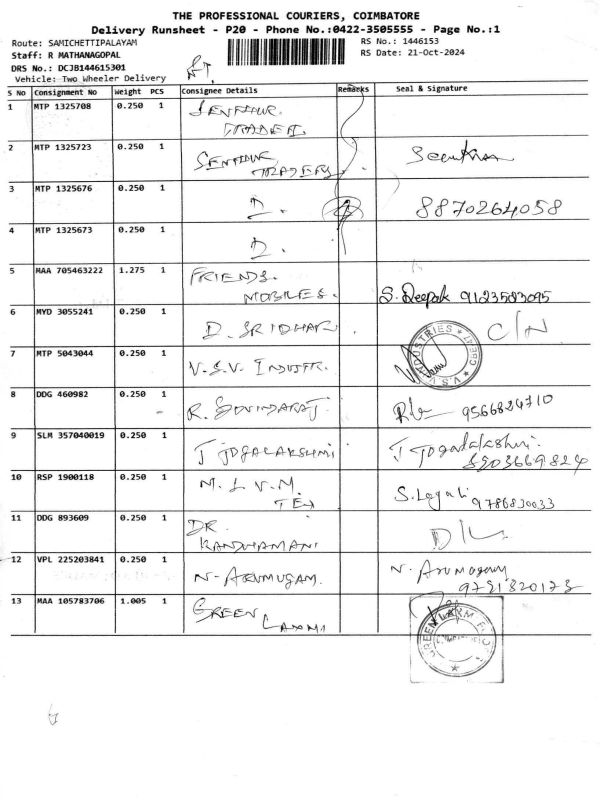 THE PROFESSIONAL COURIERS, COIMBATORE
Delivery Runsheet - P20 - Phone No.:0422-3505555 - Page No.:1
Route: SAMICHETTIPALAYAM RS No.: 1446153
Staff: R MATHANAGOPAL RS Date: 21-Oct-2024
DRS No.: DCJB144615301
Vehicle: Two Wheeler Delivery
S No Consignment No Weight PCS Consignee Details Remarks Seal & Signature
1 MTP 1325708 0.250 1
2 MTP 1325723 0.250 1
TRADERS
3 MTP 1325676 0.250 1 D. 8870264058
4 MTP 1325673 0.250 1 D.
5 MAA 705463222 1.275 1 FRIENDS.
MOBILES. S. Deepak 9123583095
6 MYD 3055241 0.250 1 D. SRIDHAR C/N
7 MTP 5043044 0.250 1 V.S.V. INDUSTR.
INDUSTRIES V.S.V.
8 DDG 460982 0.250 1 R. GOVINDARAJ. 9566824710
9 SLM 357040019 0.250 1 J JOGALAKSHMI J Jogalakshmi.
8903669824
10 RSP 1900118 0.250 1 M.L.V.M.
TEX 9786830033
11 DDG 893609 0.250 1 DR.
KANDHAMANI
12 VPL 225203841 0.250 1 N. ARUMUGAM. N. Arumugam
13 MAA 105783706 1.005 1 GREEN
GREEN